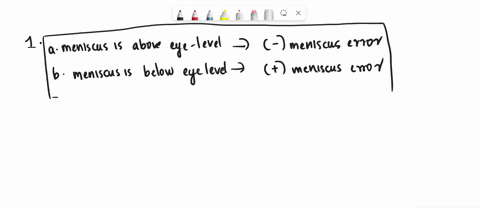 1. a. meniscus is above eye-level → (-) meniscus error
b. meniscus is below eye level → (+) meniscus error